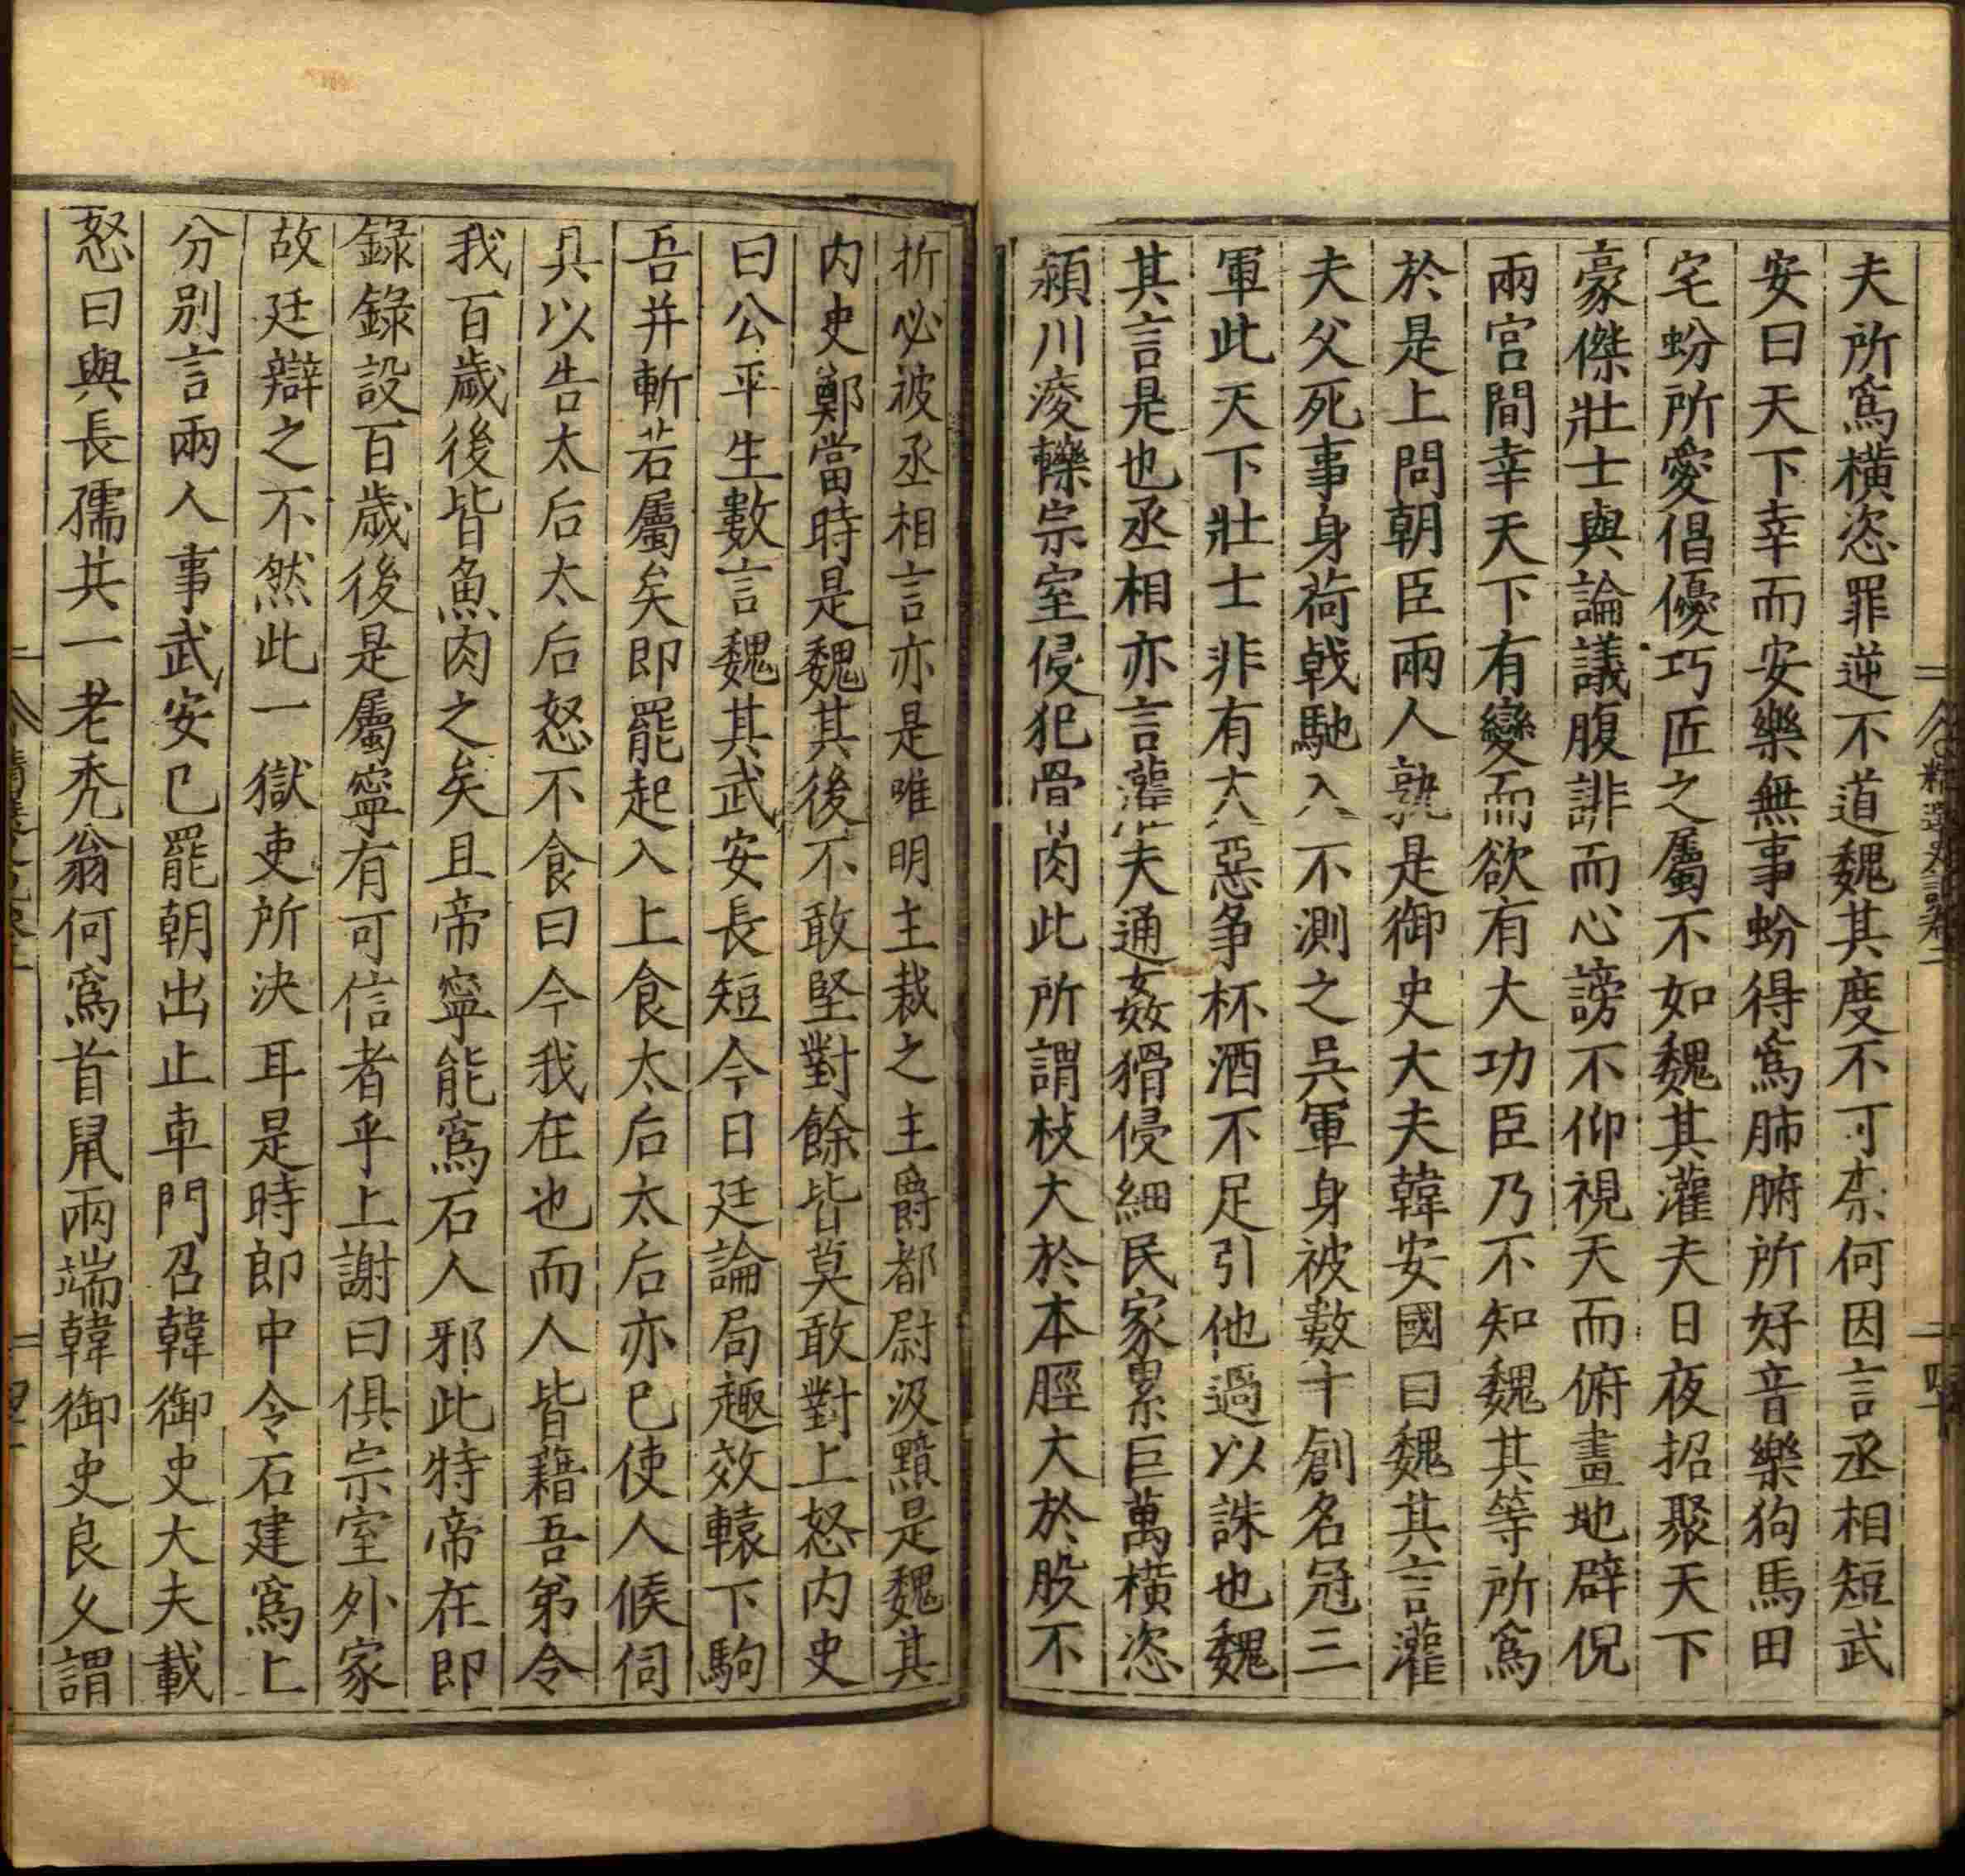 夫所爲橫恣罪逆不道魏其度不可柰何因言丞相短武
安曰天下幸而安樂無事蚡得爲肺腑所好音樂狗馬田
宅蚡所愛倡優巧匠之屬不如魏其灌夫日夜招聚天下
豪傑壯士與論議腹誹而心謗不仰視天而俯畫地辟倪
兩宮間幸天下有變而欲有大功臣乃不知魏其等所爲
於是上問朝臣兩人孰是御史大夫韓安國曰魏其言灌
夫父死事身荷戟馳入不測之吳軍身被數十創名冠三
軍此天下壯士非有大惡爭杯酒不足引他過以誅也魏
其言是也丞相亦言灌夫通姦猾侵細民家累巨萬橫恣
潁川淩轢宗室侵犯骨肉此所謂枝大於本脛大於股不
折必被丞相言亦是唯明主裁之主爵都尉汲黯是魏其
内史鄭當時是魏其後不敢堅對餘皆莫敢對上怒内史
曰公平生數言魏其武安長短今日廷論局趣效轅下駒
吾并斬若屬矣即罷起入上食太后太后亦已使人候伺
具以告太后太后怒不食曰今我在也而人皆藉吾弟令
我百歲後皆魚肉之矣且帝寧能爲石人邪此特帝在即
錄錄設百歲後是屬寧有可信者乎上謝曰俱宗室外家
故廷辯之不然此一獄吏所決耳是時郎中令石建爲上
分別言兩人事武安已罷朝出止車門召韓御史大夫載
怒曰與長孺共一老禿翁何爲首鼠兩端韓御史良久謂